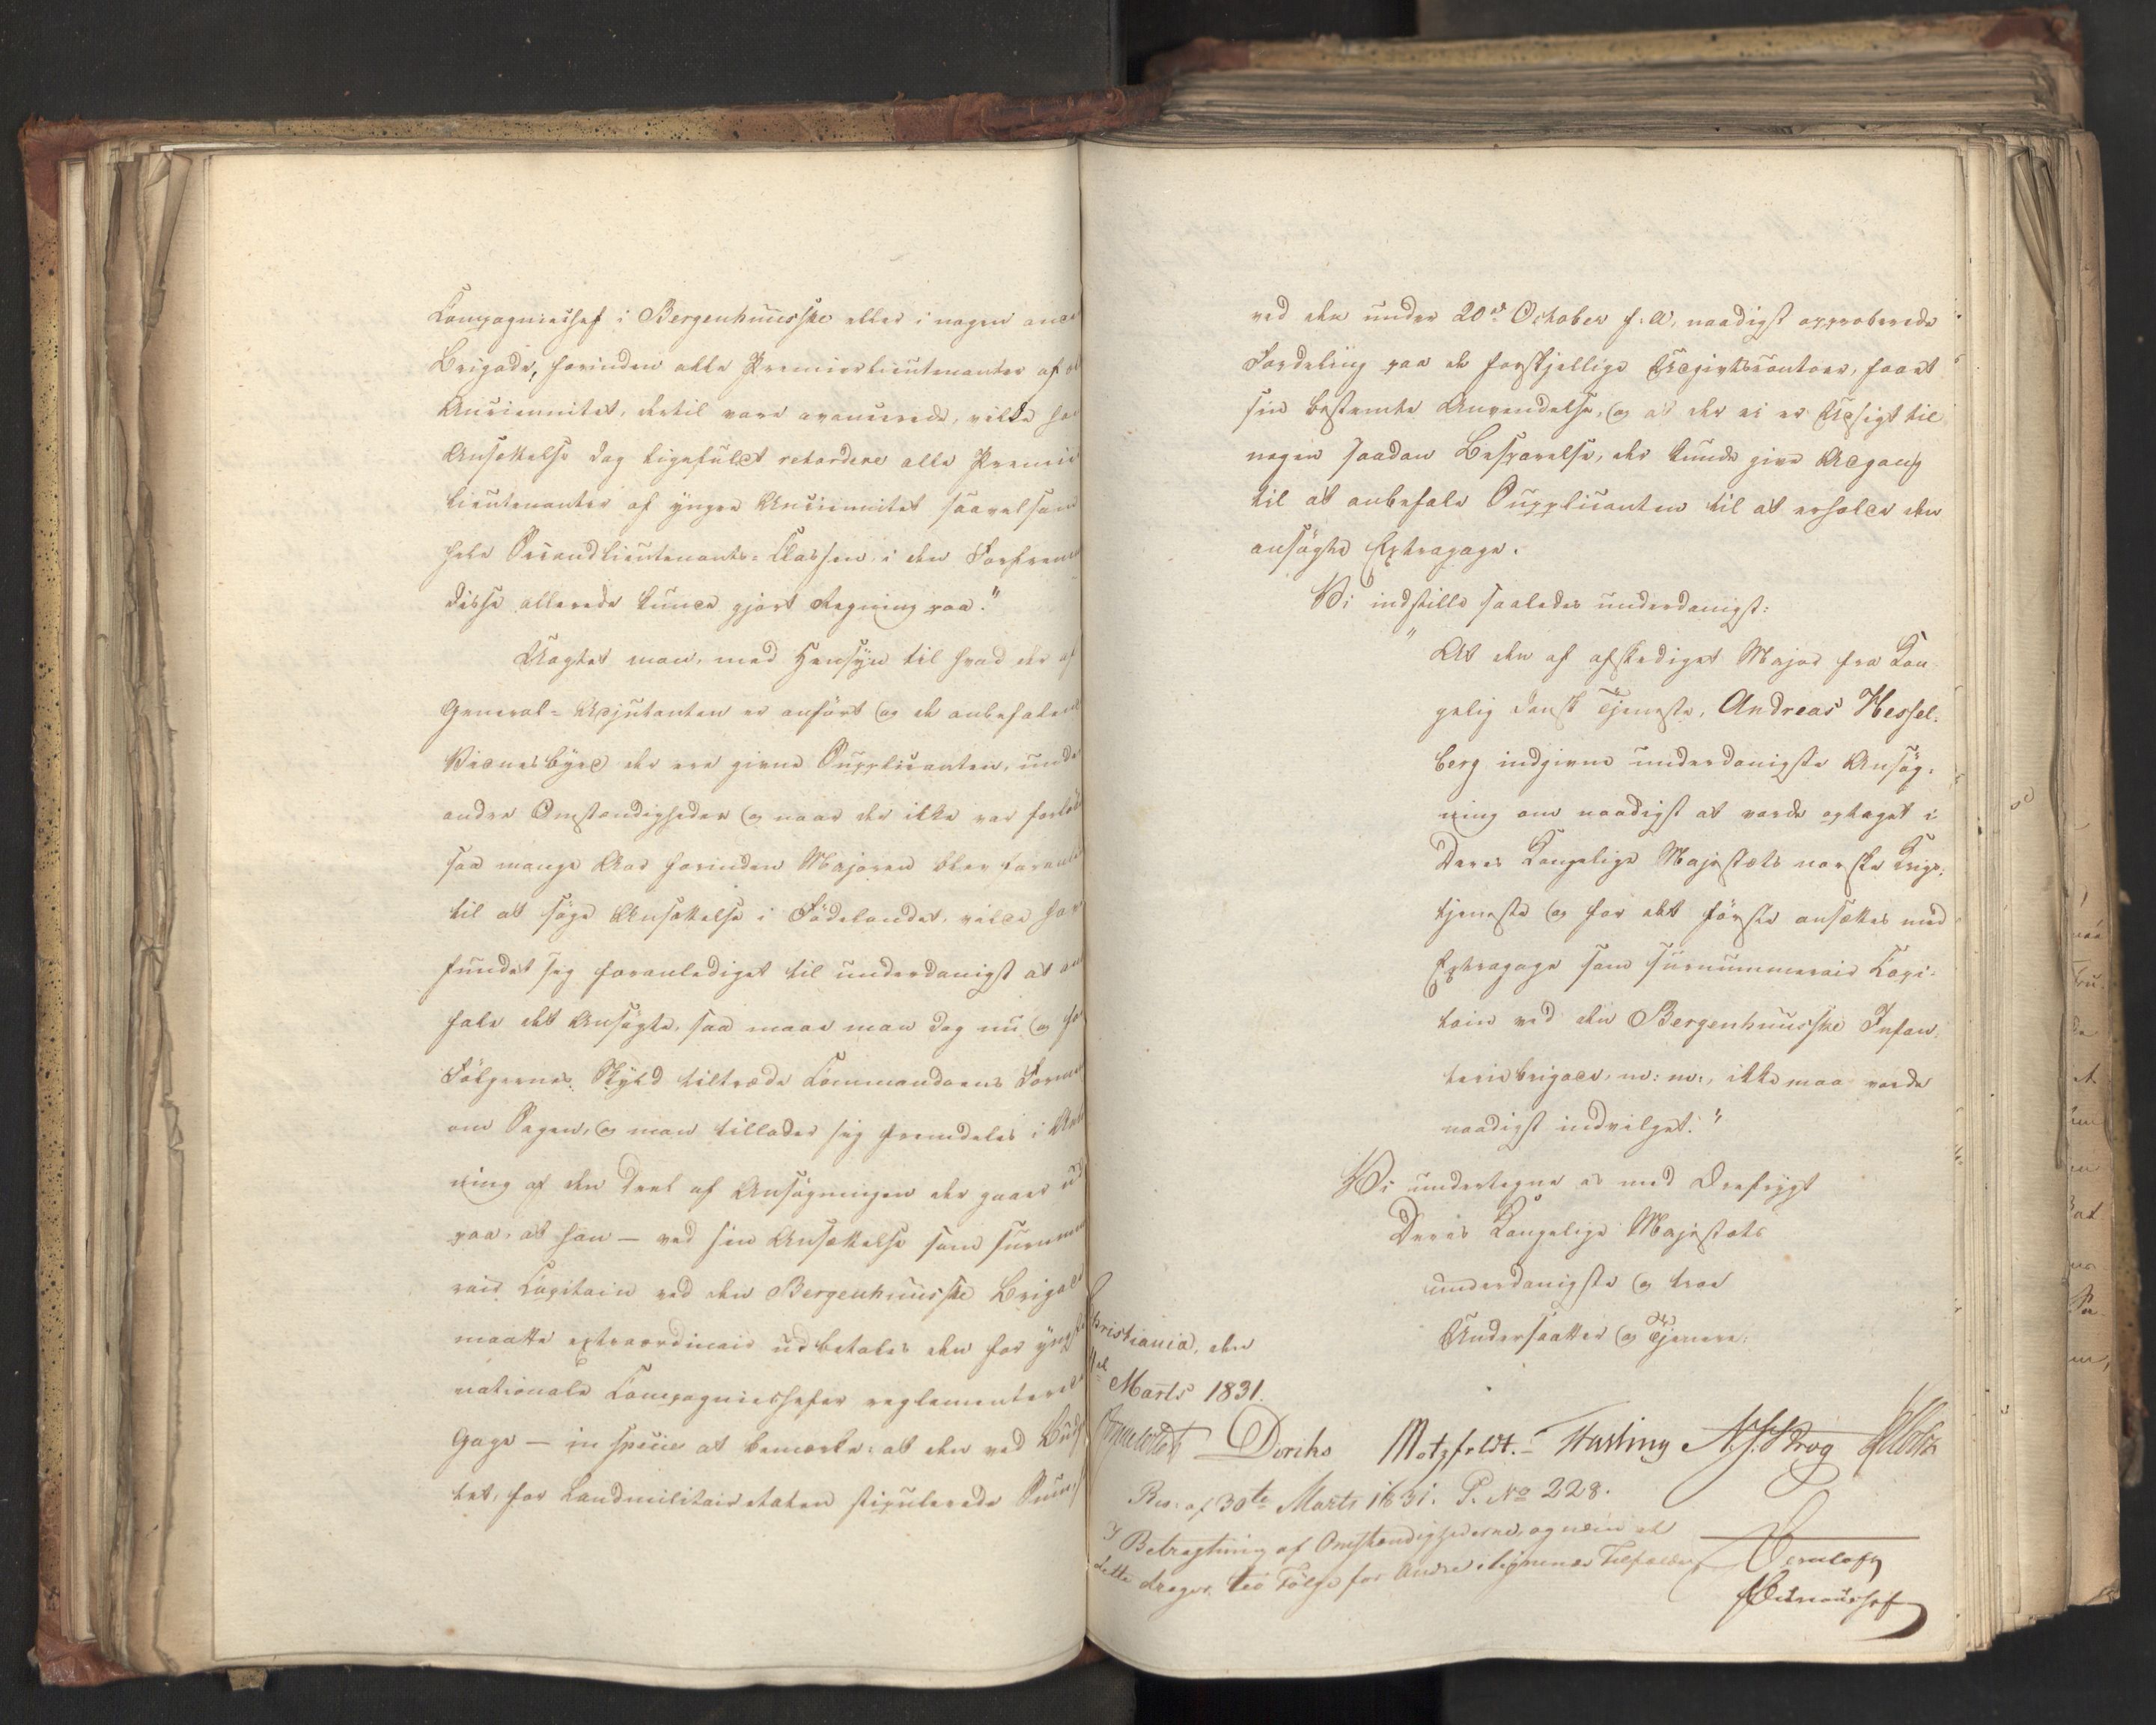 Compagniechef i Bergenhuusske eller i nogen
Brigade, forinden alle Premierlieutenanter af
Anciennitet, dertil vare avancerede, vilde
Ansættelse dog ligefuldt retardere alle Premie
lieutenanter af yngre Anciennitet saavelsom
hele Secondlieutenants-Classen i den Forfrem
disse allerede kunde gjort Regning paa."
Uagtet man, med Hensyn til hvad der af
General-Adjutanten er anført og de anbefalende
Vidnesbyrd der ere givne Supplicanten, under
andre Omstændigheder og naar der ikke var forløbet
saa mange Aar forinden Majoren blev foranle
til at søge Ansættelse i Fødelandet, vilde have
fundet sig foranlediget til underdanigst at an
fale det Ansøgte, saa maae man dog nu og for
Følgernes Skyld tiltræde Commandoens Formening
om Sagen, og man tillader sig fremdeles i
ning af den Deel af Ansøgningen der gaaer ud
paa, at han – ved sin Ansættelse som surnume
rair Capitain ved den Bergenhuusske Brigade
maatte extraordinair udbetales den for yngste
nationale Compagniechefer reglementerede
Gage – in specie at bemærke: at den ved Bud
tet, for Landmilitairetaten stipulerede Sum,
ved den under 20de October f: A, naadigst approberede
Fordeling paa de forskjellige Udgivtsconti, faaet
sin bestemte Anvendelse, og at der ei er Udsigt til
nogen saadan Besparelse, der kunde give Adgang
til at anbefale Supplicanten til at erholde den
ansøgte Extragage.
Vi indstille saaledes underdanigst:
"At den af afskediget Major fra Kon-
gelig dansk Tjeneste, Andreas Hessel-
berg indgivne underdanigste Ansøg-
ning om naadigst at vorde optaget i
Deres Kongelige Majestæts norske Krigs-
tjeneste og for det første ansættes med
Extragage som surnummerair Capi-
tain ved den Bergenhuusske Infan-
teriebrigade, m: m:, ikke maa vorde
naadigst indvilget."
Vi undertegne os med Ærefrygt
Deres Kongelige Majestæts
underdanigste og troe
Undersaatter og Tjenere:
Christiania, den
Marts 1831.
Diriks Motzfeldt. Fasting N. J. S. Krog Holst
Res: af 30te Marts 1831. P. No 228.
I Betragtning af Omstændighederne, og uden at
dette drages til Følge for Andre i lignende Tilfælde